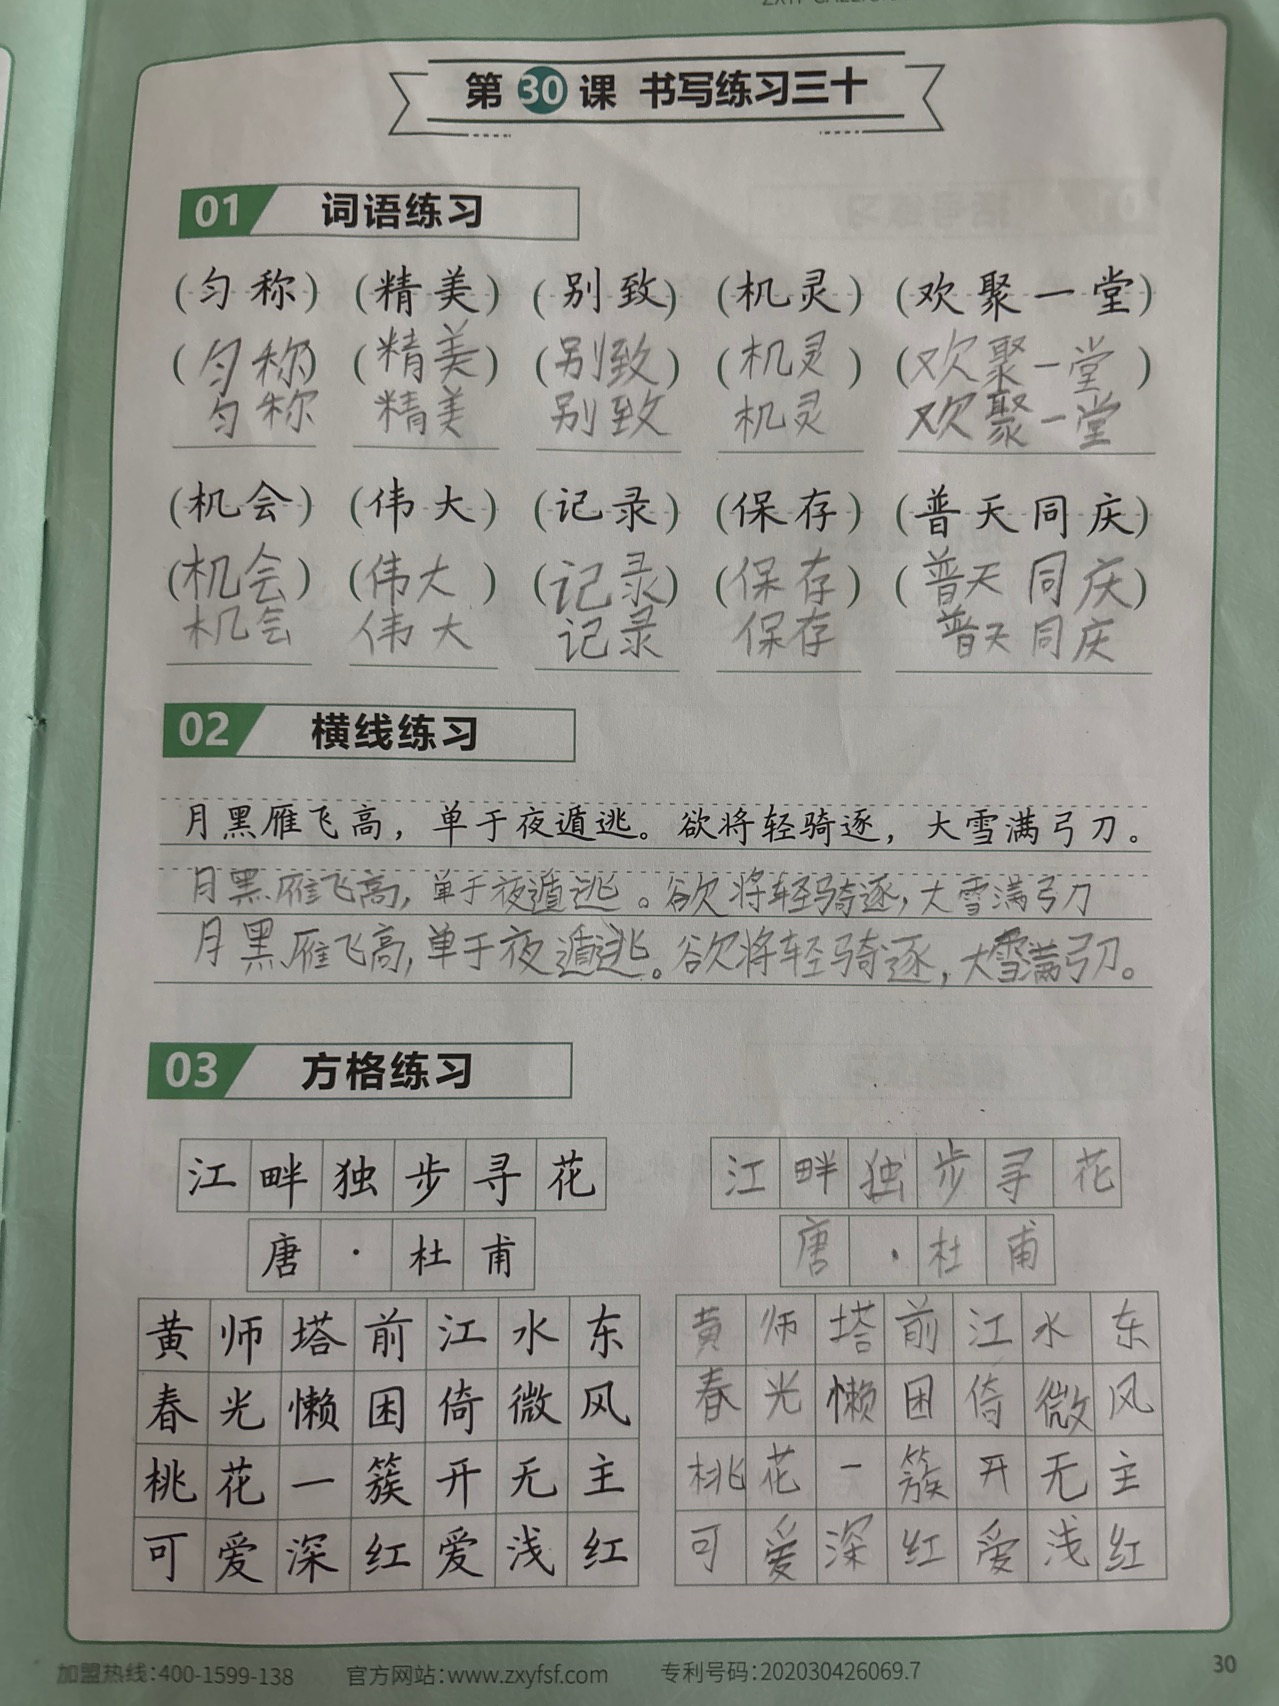 第30课 书写练习三十
01 词语练习
(匀称) (精美) (别致) (机灵) (欢聚一堂)
(匀称) (精美) (别致) (机灵) (欢聚一堂)
匀称 精美 别致 机灵 欢聚一堂
(机会) (伟大) (记录) (保存) (普天同庆)
(机会) (伟大) (记录) (保存) (普天同庆)
机会 伟大 记录 保存 普天同庆
02 横线练习
月黑雁飞高，单于夜遁逃。欲将轻骑逐，大雪满弓刀。
月黑雁飞高，单于夜遁逃。欲将轻骑逐，大雪满弓刀
月黑雁飞高，单于夜遁逃。欲将轻骑逐，大雪满弓刀。
03 方格练习
江畔独步寻花 江畔独步寻花
唐·杜甫 唐·杜甫
黄师塔前江水东 黄师塔前江水东
春光懒困倚微风 春光懒困倚微风
桃花一簇开无主 桃花一簇开无主
可爱深红爱浅红 可爱深红爱浅红
加盟热线:400-1599-138 官方网站:www.zxyfsf.com 专利号码:202030426069.7 30